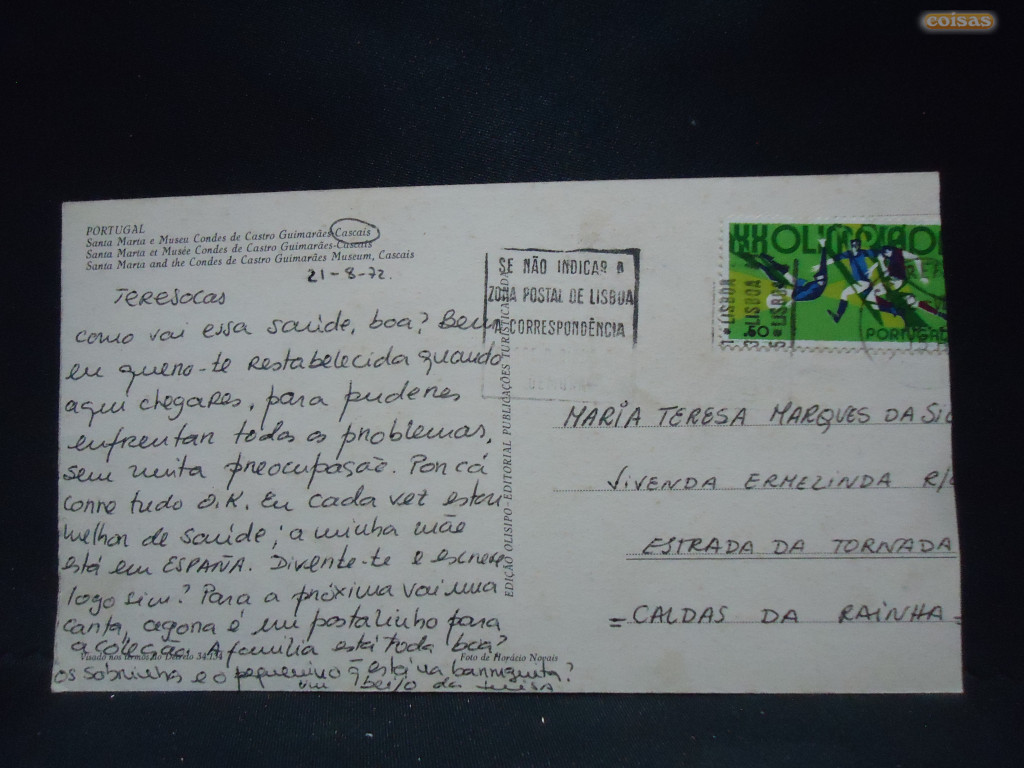 coisas
PORTUGAL
Santa Marta e Museu Condes de Castro Guimarães-Cascais
Santa Marta et Musée Condes de Castro Guimarães-Cascais
Santa Marta and the Condes de Castro Guimarães Museum, Cascais
21-8-72.
TERESOCAS
como vai essa saúde, boa? Bem
eu quero-te restabelecida quando
aqui chegares, para puderes
enfrentar todos os problemas,
sem muita preocupação. Por cá
corre tudo O.K. Eu cada vez estou
melhor de saúde; a minha mãe
está em ESPAÑA. Diverte-te e escreve
logo sim? Para a próxima vai uma
carta, agora é um postalinho para
a coleção. A família está toda boa?
os sobrinhos e o pequenino q̃ está na barriguita?
um beijo da
Visado nos termos do Decreto 34.134
Foto de Horácio Novais
EDIÇÃO OLISIPO - EDITORIAL PUBLICAÇÕES TURÍSTICAS
SE NÃO INDICAR A
ZONA POSTAL DE LISBOA
A CORRESPONDÊNCIA
XX OLIMPIADA
LISBOA
LISBOA
LISBOA
.50
PORTUGAL
MARIA TERESA MARQUES DA SIL
VIVENDA ERMEZINDA R/C
ESTRADA DA TORNADA
= CALDAS DA RAINHA =